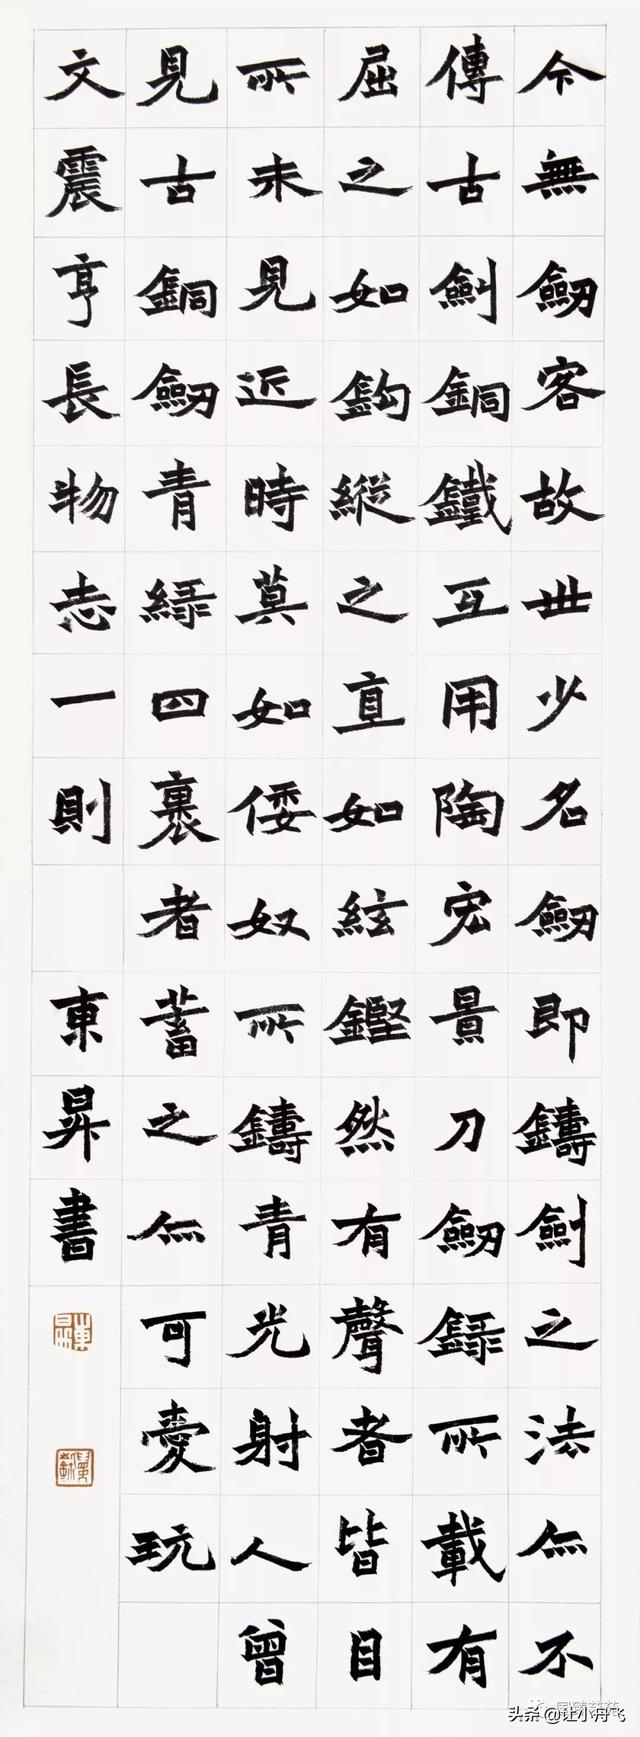 今無劒客故世少名劒即鑄劍之法亦不
傳古劍銅鐵互用陶宏景刀劒録所載有
屈之如鈎縱之直如絃鏗然有聲者皆目
所未見近時莫如倭奴所鑄青光射人曾
見古銅劒青緑四裹者蓄之亦可愛玩
文震亨長物志一則 東昇書
東昇
头条 @让小丹飞